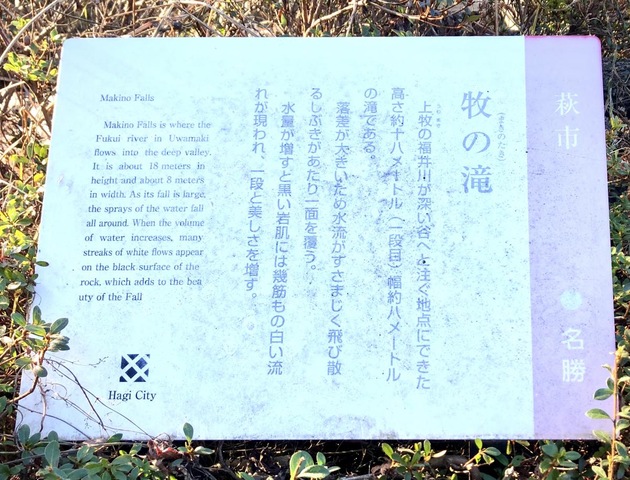 萩市
名勝
牧の滝
(まきのたき)
上牧の福井川が深い谷へと注ぐ地点にできた
高さ約十八メートル(一段目)幅約八メートル
の滝である。
落差が大きいため水流がすさまじく飛び散
るしぶきがあたり一面を覆う。
水量が増すと黒い岩肌には幾筋もの白い流
れが現われ、一段と美しさを増す。
Makino Falls
Makino Falls is where the
Fukui river in Uwamaki
flows into the deep valley.
It is about 18 meters in
height and about 8 meters
in width. As its fall is large,
the sprays of the water fall
all around. When the volume
of water increases, many
streaks of white flows appear
on the black surface of the
rock, which adds to the bea
uty of the Fall
Hagi City